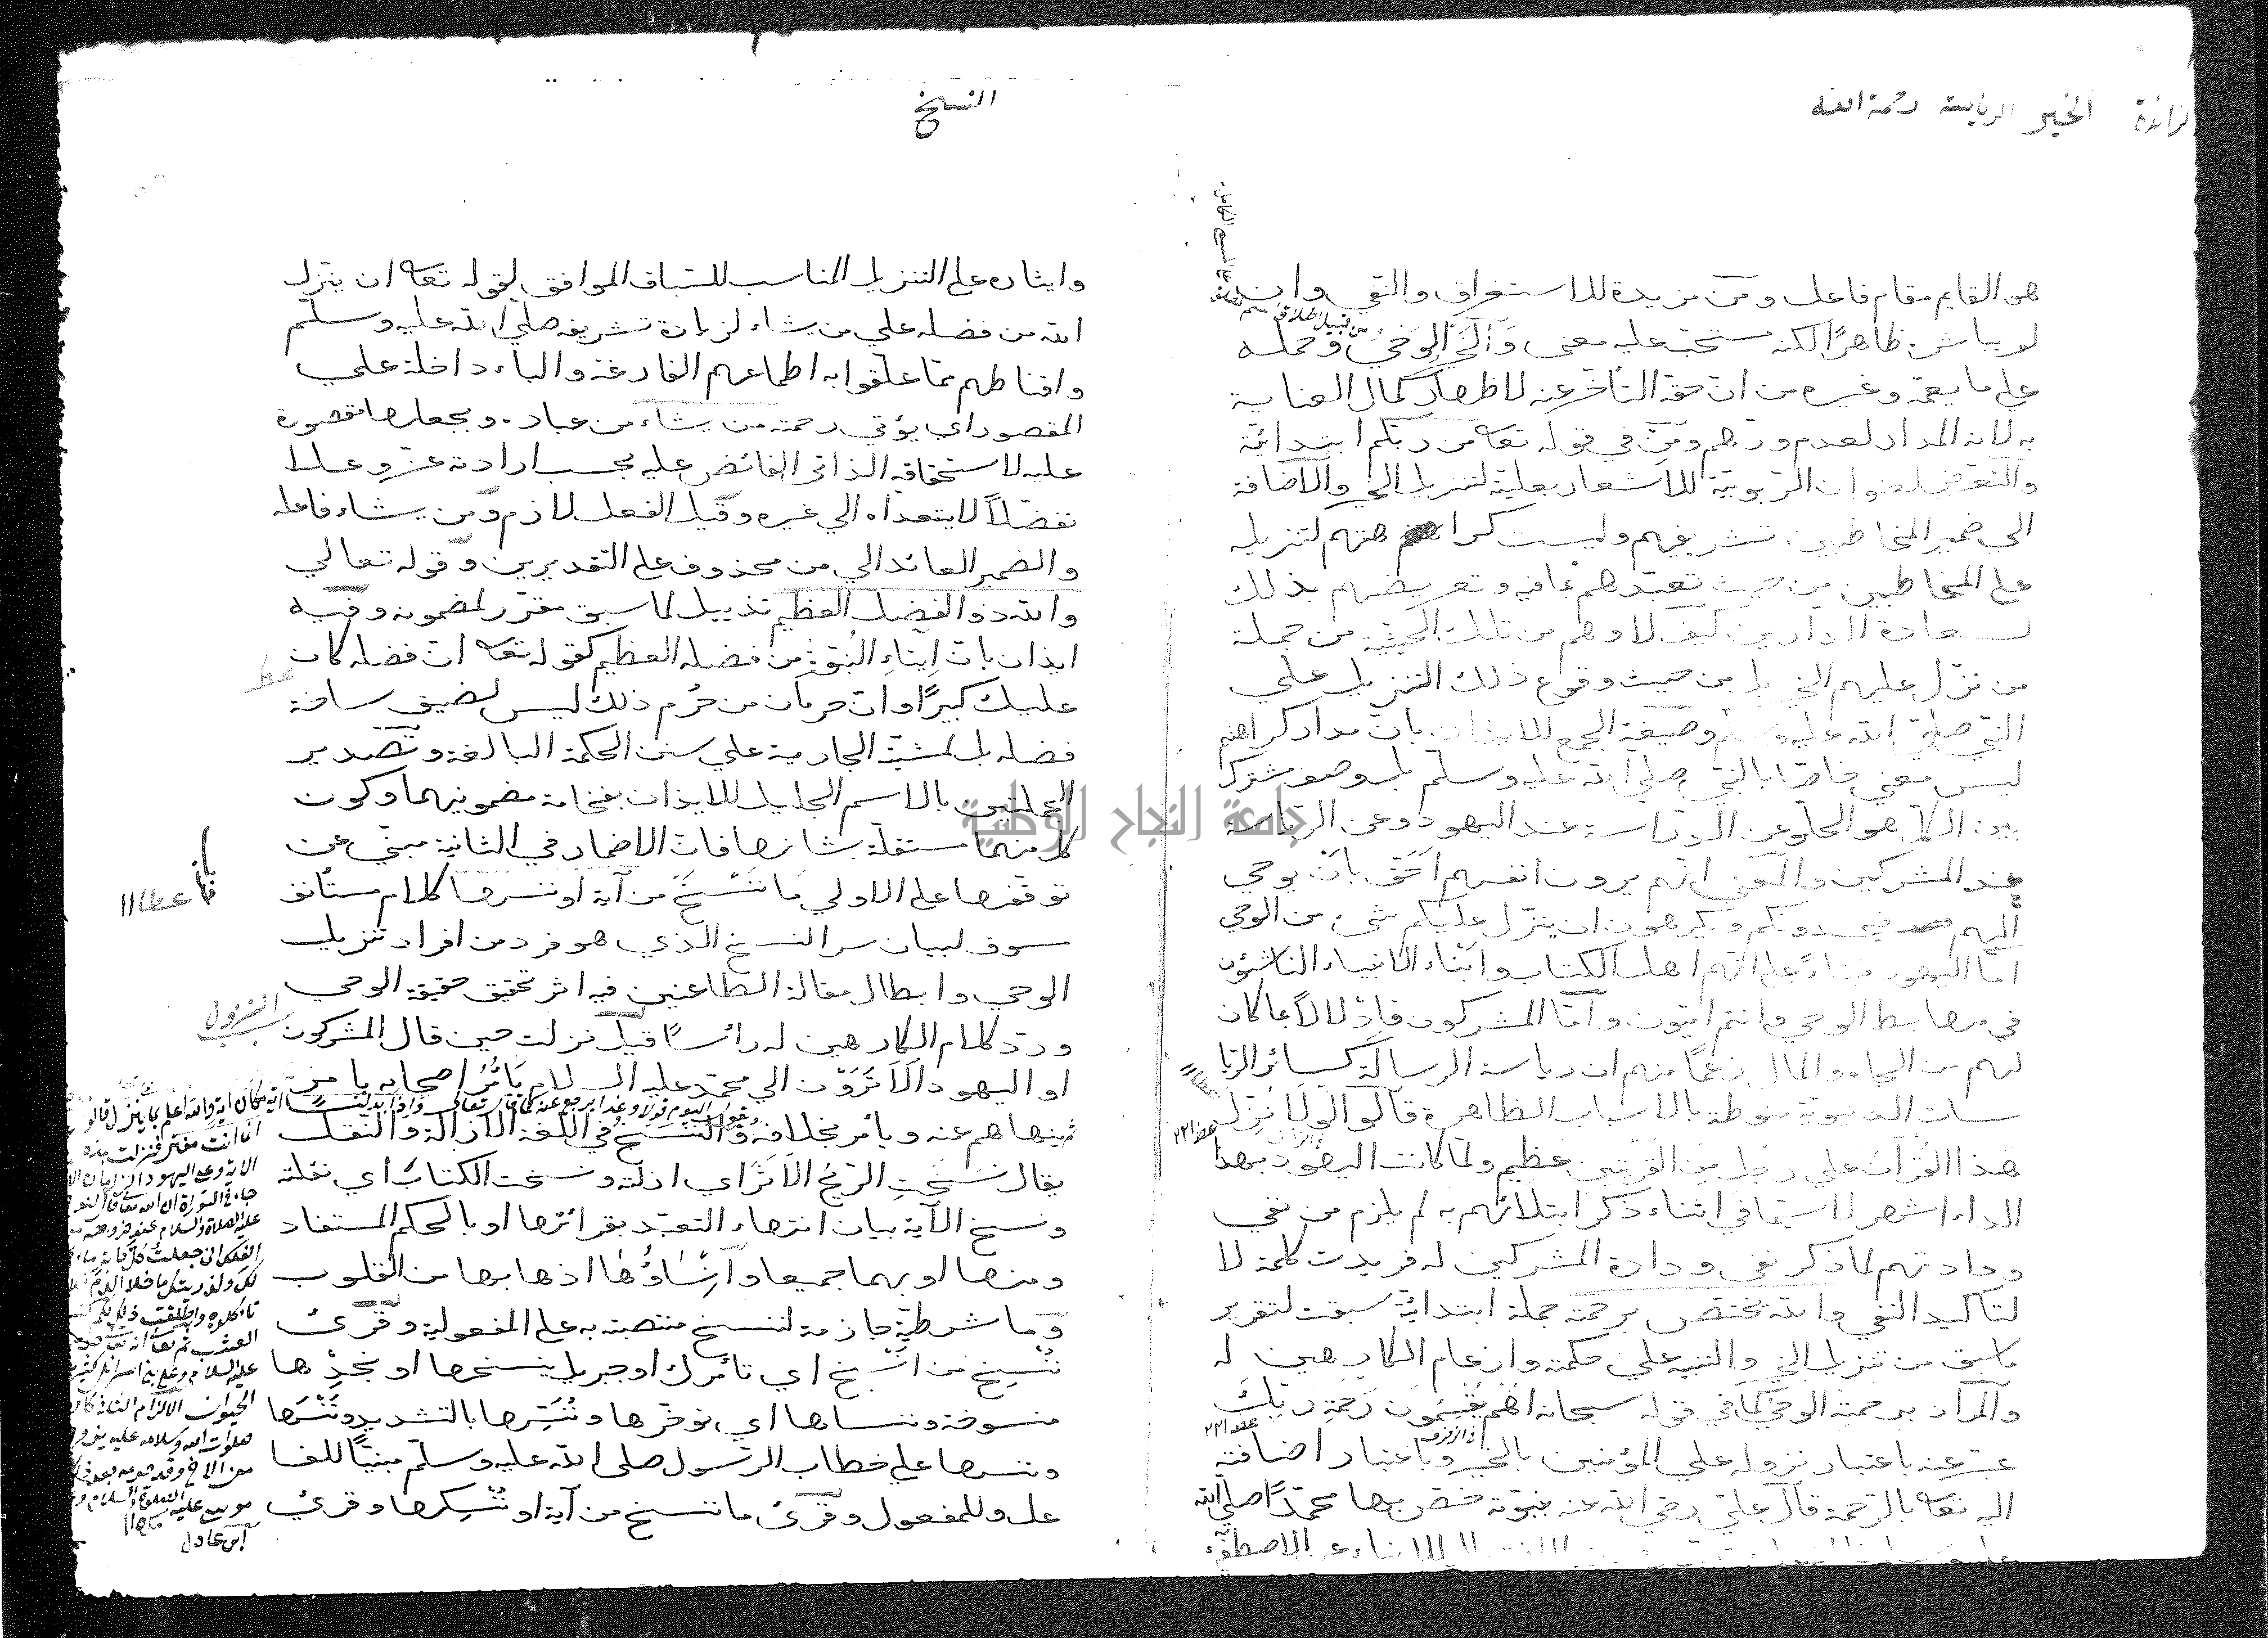 الخير الربانية رحمة الله
هو القايم مقام فاعله ومن مزيدة للاستغراق والنفي وان
لم يباشره ظاهرًا لكنه منسحب عليه معنى والخير الوحي وحمله
على ما يعمه وغيره من ان حقه التأخر عنه لاظهار كمال العناية
به لانه المدار لعدم ودهم ومن في قوله تعا من ربكم ابتدائية
والتعرض لعنوان الربوبية للاشعار بعلية لتنزيل الخير والاضافة
الى ضمير المخاطبين تشريفهم وليست كراهتهم لتنزيله
على المخاطبين من حيث تعبدهم بما فيه وتعريضهم بذلك
لسعادة الدارين كيف لا وهم من تلك الحيثية من جملة
من نزل عليهم الخير بل من حيث وقوع ذلك التنزيل على
النبي صلى الله عليه وسلم وصيغة الجمع للايذان بان مدار كراهتهم
ليس معنى خاصا بالنبي صلى الله عليه وسلم بل وصف مشترك
بين الكل هو الخلو عن الدراسة عند اليهود وعن الرياسة
عند المشركين والمعنى انهم يرون انفسهم احق بان يوحى
اليهم فيحسدونكم ويكرهون ان ينزل عليكم شئ من الوحى
اما اليهود فبناءً على انهم اهل الكتاب وابناء الانبياء الناشئون
في مهابط الوحي وانتم اميون واما المشركون فادلالا بما كان
لهم من الجاه والمال زعمًا منهم ان رياسة الرسالة كسائر الريا
سات الدنيوية منوطة بالاسباب الظاهرة قالوا لولا نزل
هذا القرآن على رجل من القريتين عظيم ولما كانت اليهود بهذا
الداء اشهر لا سيما في اثناء ذكر ابتلائهم به لم يلزم من نفي
ودادتهم لما ذكر نفي ودادة المشركين له فزيدت كلمة لا
لتاكيد النفي والله يختص برحمته جملة ابتدائية سيقت لتقرير
ما سبق من تنزيل الخير والتنبيه على حكمته وارغام الكارهين له
والمراد برحمته الوحي كما في قوله سبحانه اهم يقسمون رحمة ربك
عبر عنه باعتبار نزوله على المؤمنين بالخير وباعتبار اضافته
اليه تعا بالرحمة قال علي رضي الله عنه بنبوته خص بها محمدًا صلى الله
النسخ
وايثاره على التنزيل المناسب للسياق الموافق لقوله تعا ان ينزل
الله من فضله على من يشاء لزيادة تشريفه صلى الله عليه وسلم
واقناطهم مما علقوا به اطماعهم الفارغة والباء داخلة على
المقصور اي يؤتي رحمته من يشاء من عباده ويجعلها مقصورة
عليه لاستحقاقه الذاتى الفائض عليه بحسب ارادته عز وعلا
تفضلاً لا يتعداه الى غيره وقيل الفعل لازم ومن يشاء فاعله
والضمير العائد الى من محذوف على التقديرين وقوله تعالى
والله ذو الفضل العظيم تذييل لما سبق مقرر لمضمونه وفيه
ايذان بان ايتاء النبوة من فضله العظيم كقوله تعا ان فضله كان
عليك كبيرًا وان حرمان من حرم ذلك ليس لضيق ساحة
فضله بل لمشيئته الجارية على سنن الحكمة البالغة وتصدير
الجملتين بالاسم الجليل للايذان بفخامة مضمونيهما وكون
كل منهما مستقلة بشانها فان الاضمار في الثانية مبنى عن
توقفها على الاولى ما ننسخ من آية او ننسها كلام مستأنف
سوق لبيان سر النسخ الذي هو فرد من افراد تنزيل
الوحي وابطال مقالة الطاعنين فيه اثر تحقيق حقيقة الوحي
ورد كلام الكارهين له رأسًا قيل نزلت حين قال المشركون
او اليهود ألا ترون الى محمد عليه السلام يأمر اصحابه بامر
ثم ينهاهم عنه ويأمر بخلافه والنسخ في اللغة الازالة والنقل
يقال نسخت الريح الاثر اي ازلته ونسخت الكتاب اي نقلته
ونسخ الآية بيان انتهاء التعبد بقرائتها او بالحكم المستفاد
ومنها او بهما جميعا وانساؤها اذهابها من القلوب
وما شرطية جازمة لننسخ منتصبة به على المفعولية وقرئ
ننسخ من انسخ اي نأمرك او جبريل ينسخها او نجدها
منسوخة وننساها اي نوخرها وننسها بالتشديد وتنسها
وتنسها على خطاب الرسول صلى الله عليه وسلم مبنيًا للفا
عل وللمفعول وقرئ ما ننسخ من آية او ننسكها وقرئ
ويقول اليوم قولا وغدا يرجع عنه كما قال تعالى واذا بدلنا
آية مكان آية والله اعلم بما ينزل قالوا
انما انت مفتر فنزلت هذه
ابن عادل
جامعة النجاح الوطنية